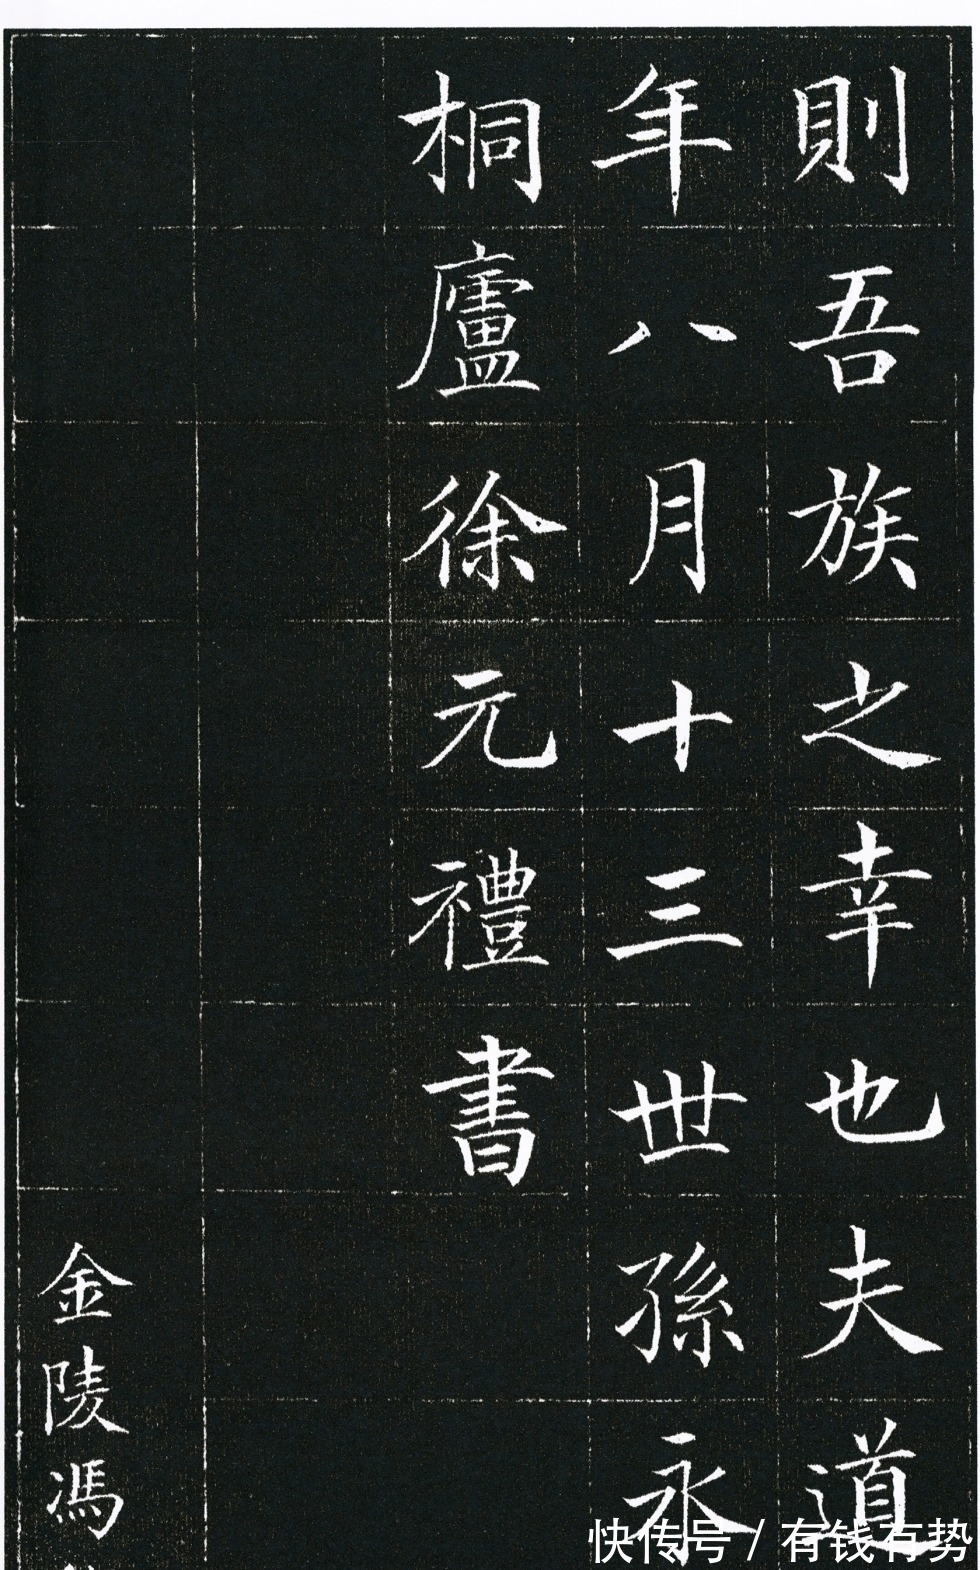 則吾族之幸也夫道
年八月十三世孫永
桐廬徐元禮書
金陵馮
快传号/有钱有势